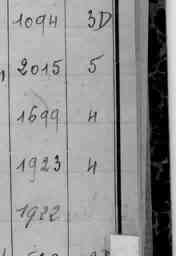 1094 3D
2015 5
1699 4
1923 4
1922